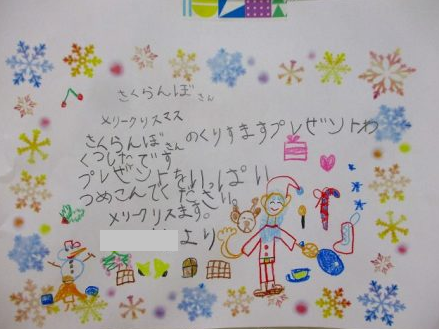 さくらんぼさん
メリークリスマス
さくらんぼさんのくりすますプレゼントわ
くつしたです
プレゼントをいっぱい
つめこんでください。
メリークリスます。
より